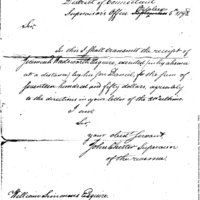 District of Connecticut
Supervisors Office October 6th 1798
Sir,
In this I shall transmit the receipt of
Jeremiah Wadsworth Esquire, executed for his absence
at a distance by his son Daniel, for the sum of
seventeen hundred and fifty dollars, agreeably
to the directions in your letter of the
I am
Sir,
your obed. servant
John Chester Supervisor
of the revenue
William Simmons Esquire